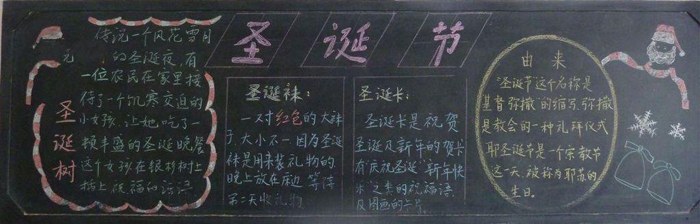 圣诞节
传说一个风花雪月
的圣诞夜,有
一位农民在家里接
待了一个饥寒交迫的
小女孩,让她吃了一
顿丰盛的圣诞晚餐
这个女孩在
圣诞树
圣诞袜:
一对红色的大袜
子,大小不一因为圣诞
袜是用来装礼物的
晚上放在床边 等待
第二天收礼物
圣诞卡:
圣诞卡是祝贺
圣诞及新年的贺卡
有"庆祝圣诞""新年快
乐"之类的祝福语
及图画的卡片
由来
"圣诞节"这个名称是
基督弥撒"的缩写,弥撒
是教会的一种礼拜仪式
耶圣诞节是一个宗教节
这一天,被称为耶苏的
生日。